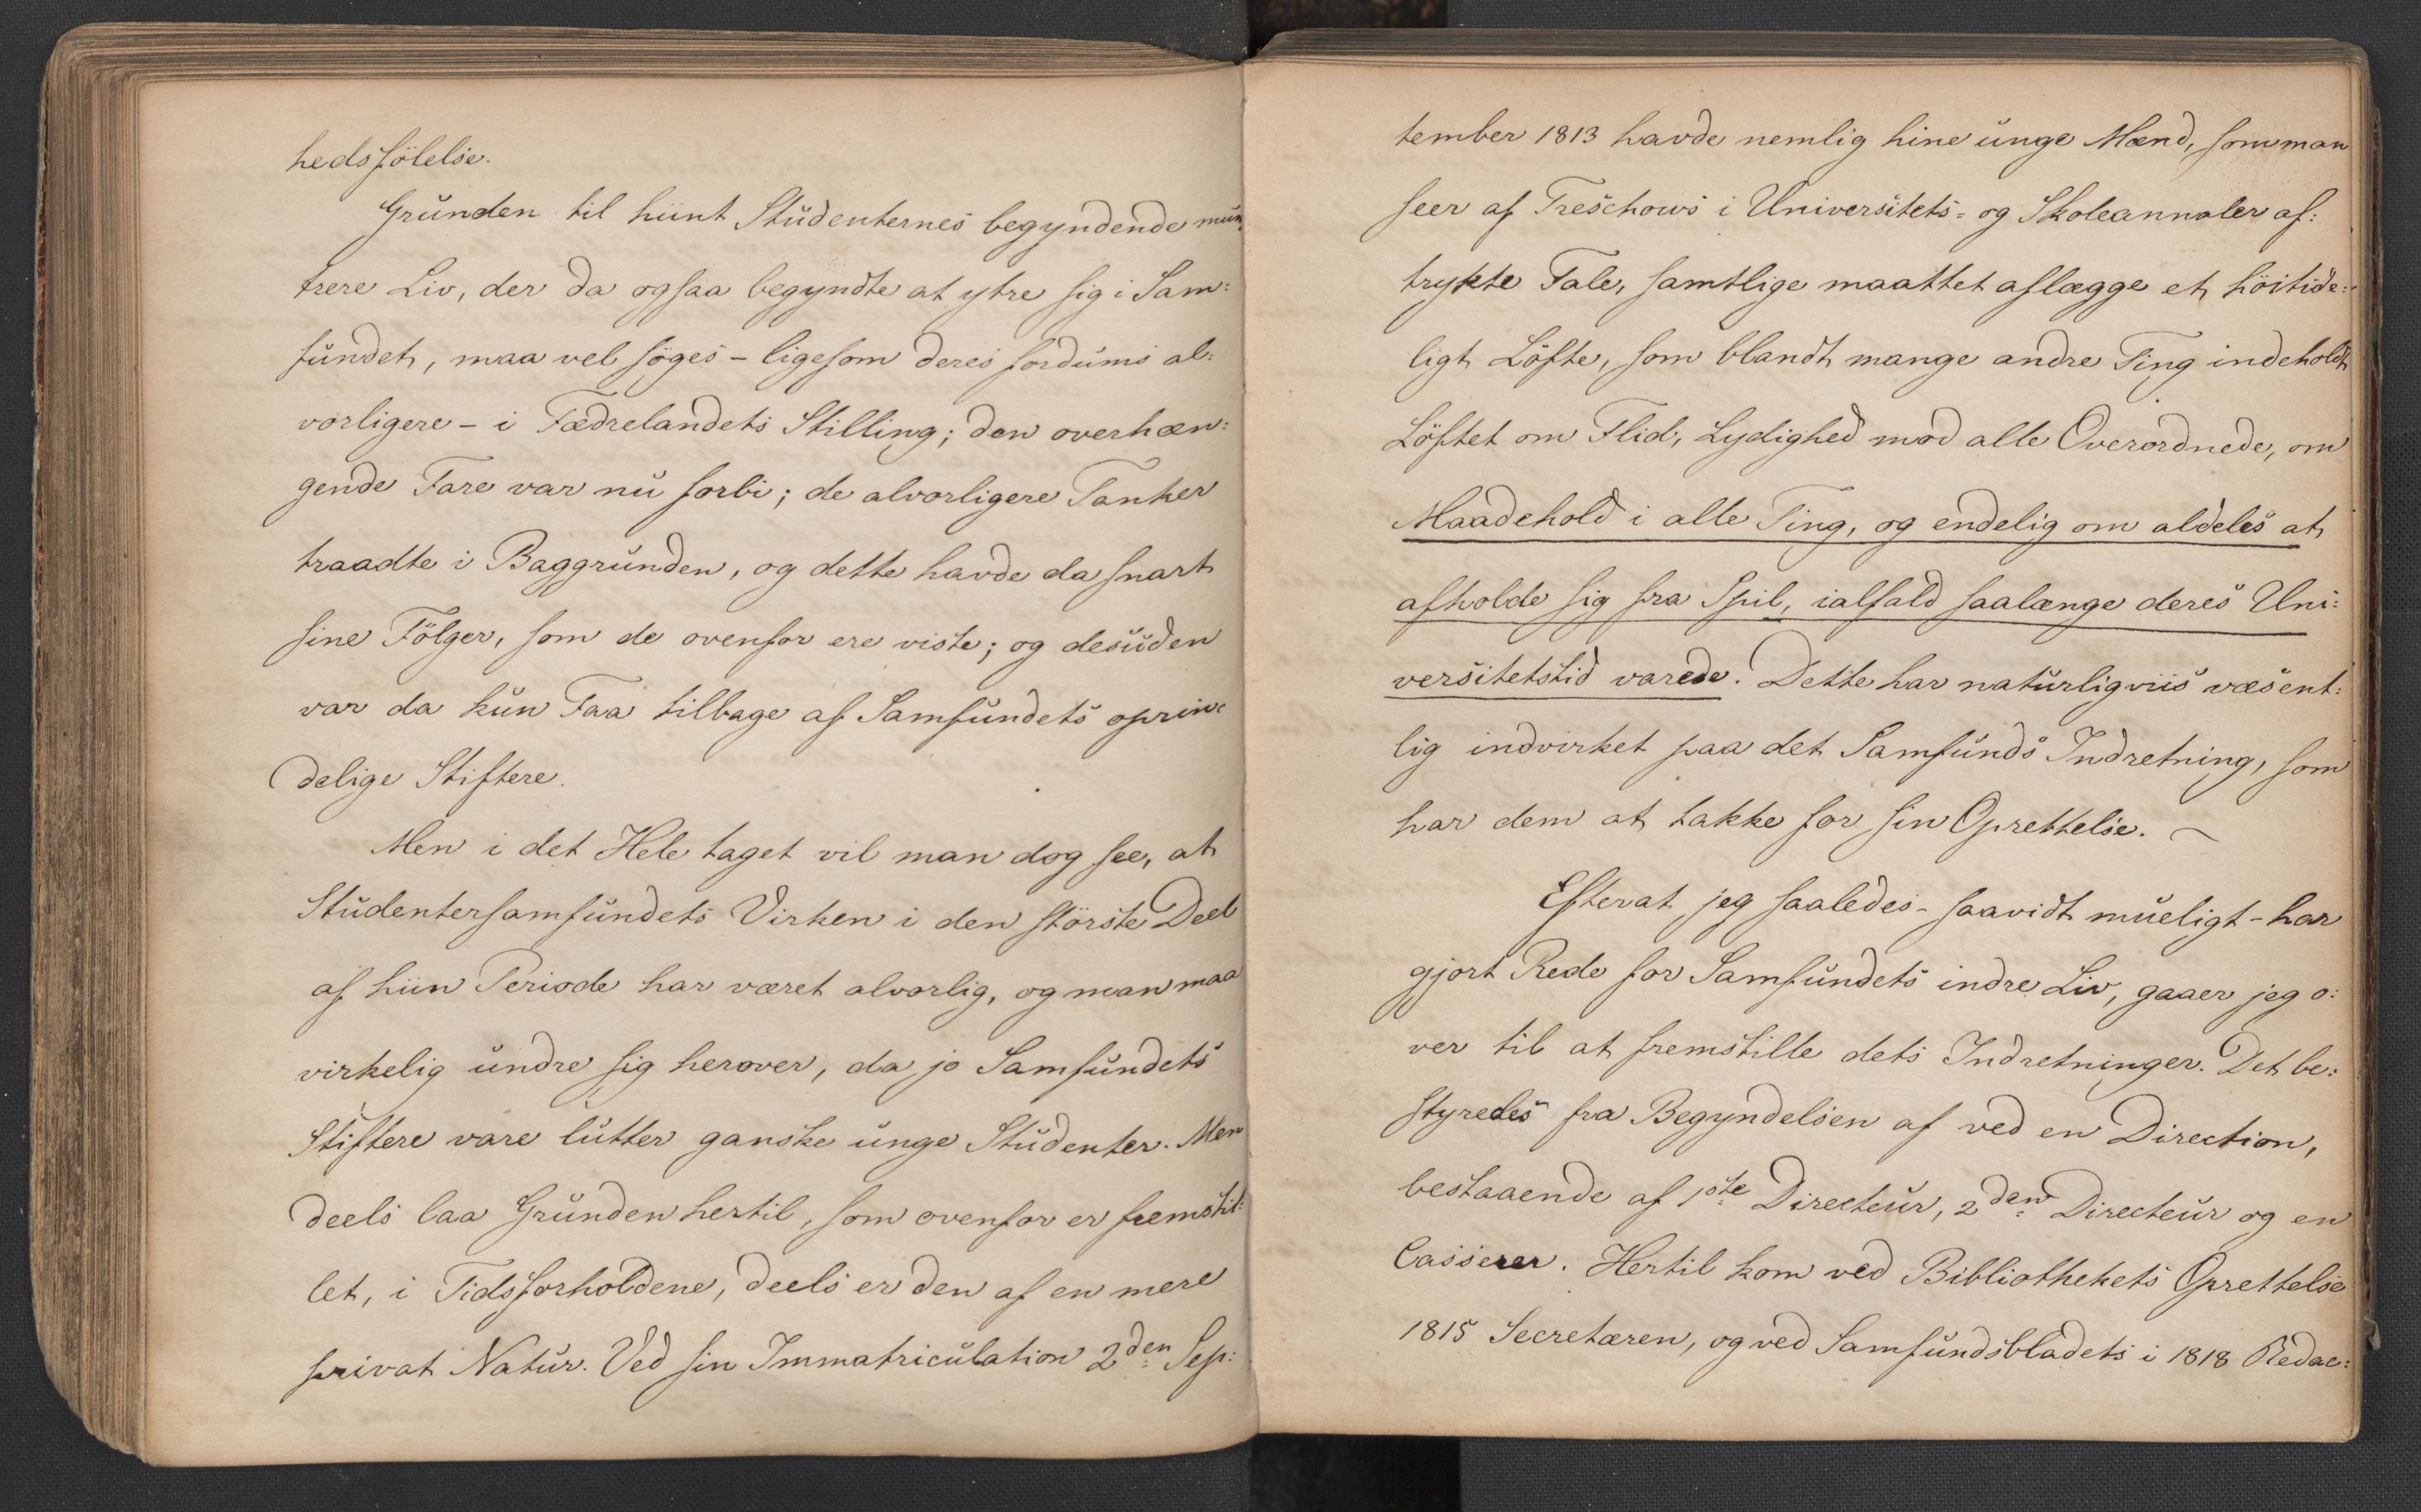 hedsfölelse.
Grunden til hiint Studenternes begyndende mun-
trere Liv, der da ogsaa begyndte at ytre sig i Sam-
fundet, maa vel söges - ligesom deres fordums al-
vorligere - i Fædrelandets Stilling; den overhæn-
gende Fare var nu forbi; de alvorligere Tanker
traadte i Baggrunden, og dette havde da snart
sine Fölger, som de ovenfor ere viste; og desuden
var da kun Faa tilbage af Samfundets oprin-
delige Stiftere.
Men i det Hele taget vil man dog see, at
Studentersamfundets Virken i den störste Deel
af hiin Periode har været alvorlig, og man maa
virkelig undre sig herover, da jo Samfundets
Stiftere vare lutter ganske unge Studenter. Men
deels laa Grunden hertil, som ovenfor er fremstil-
let, i Tidsforholdene, deels er den af en mere
privat Natur. Ved sin Immatriculation 2den Sep-
tember 1813 havde nemlig hine unge Mænd, som man
seer af Treschows i Universitets- og Skoleannaler af-
trykte Tale, samtlige maattet aflægge et höitide-
ligt Löfte, som blandt mange andre Ting indeholdt
Löftet om Flid, Lydighed mod alle Overordnede, om
Maadehold i alle Ting, og endelig om aldeles at
afholde sig fra Spil, ialfald saalænge deres Uni-
versitetstid varede. Dette har naturligviis væsent-
lig indvirket paa det Samfunds Indretning, som
har dem at takke for sin Oprettelse. ~
Efterat jeg saaledes - saavidt mueligt - har
gjort Rede for Samfundets indre Liv, gaaer jeg o-
ver til at fremstille dets Indretninger. Det be-
styredes fra Begyndelsen af ved en Direction,
bestaaende af 1ste Directeur, 2den Directeur og en
Casserer. Hertil kom ved Bibliothekets Oprettelse
1815 Secretæren, og ved Samfundsbladets i 1818 Redac-